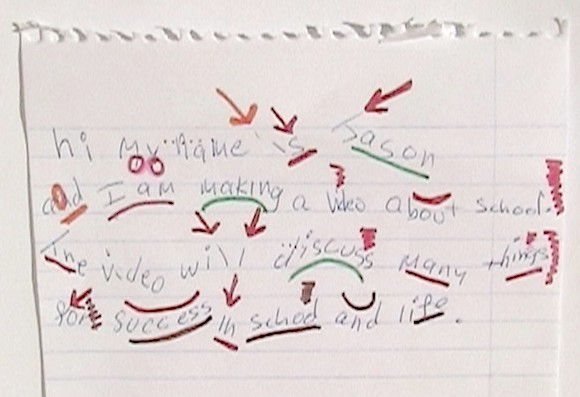 hi My name is Jason
and I am making a Video about school.
The video will discuss Many things
for success In school and life.